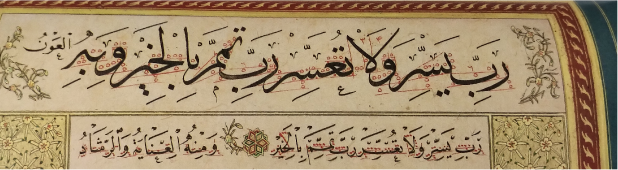 رَبِّ يَسِّرْ وَلَا تُعَسِّرْ رَبِّ تَمِّمْ بِالْخَيْرِ وَبِهِ الْعَوْنُ
رَبِّ يَسِّرْ وَلَا تُعَسِّرْ رَبِّ تَمِّمْ بِالْخَيْرِ وَمِنْهُ الْعِنَايَةُ وَالْإِرْشَادُ